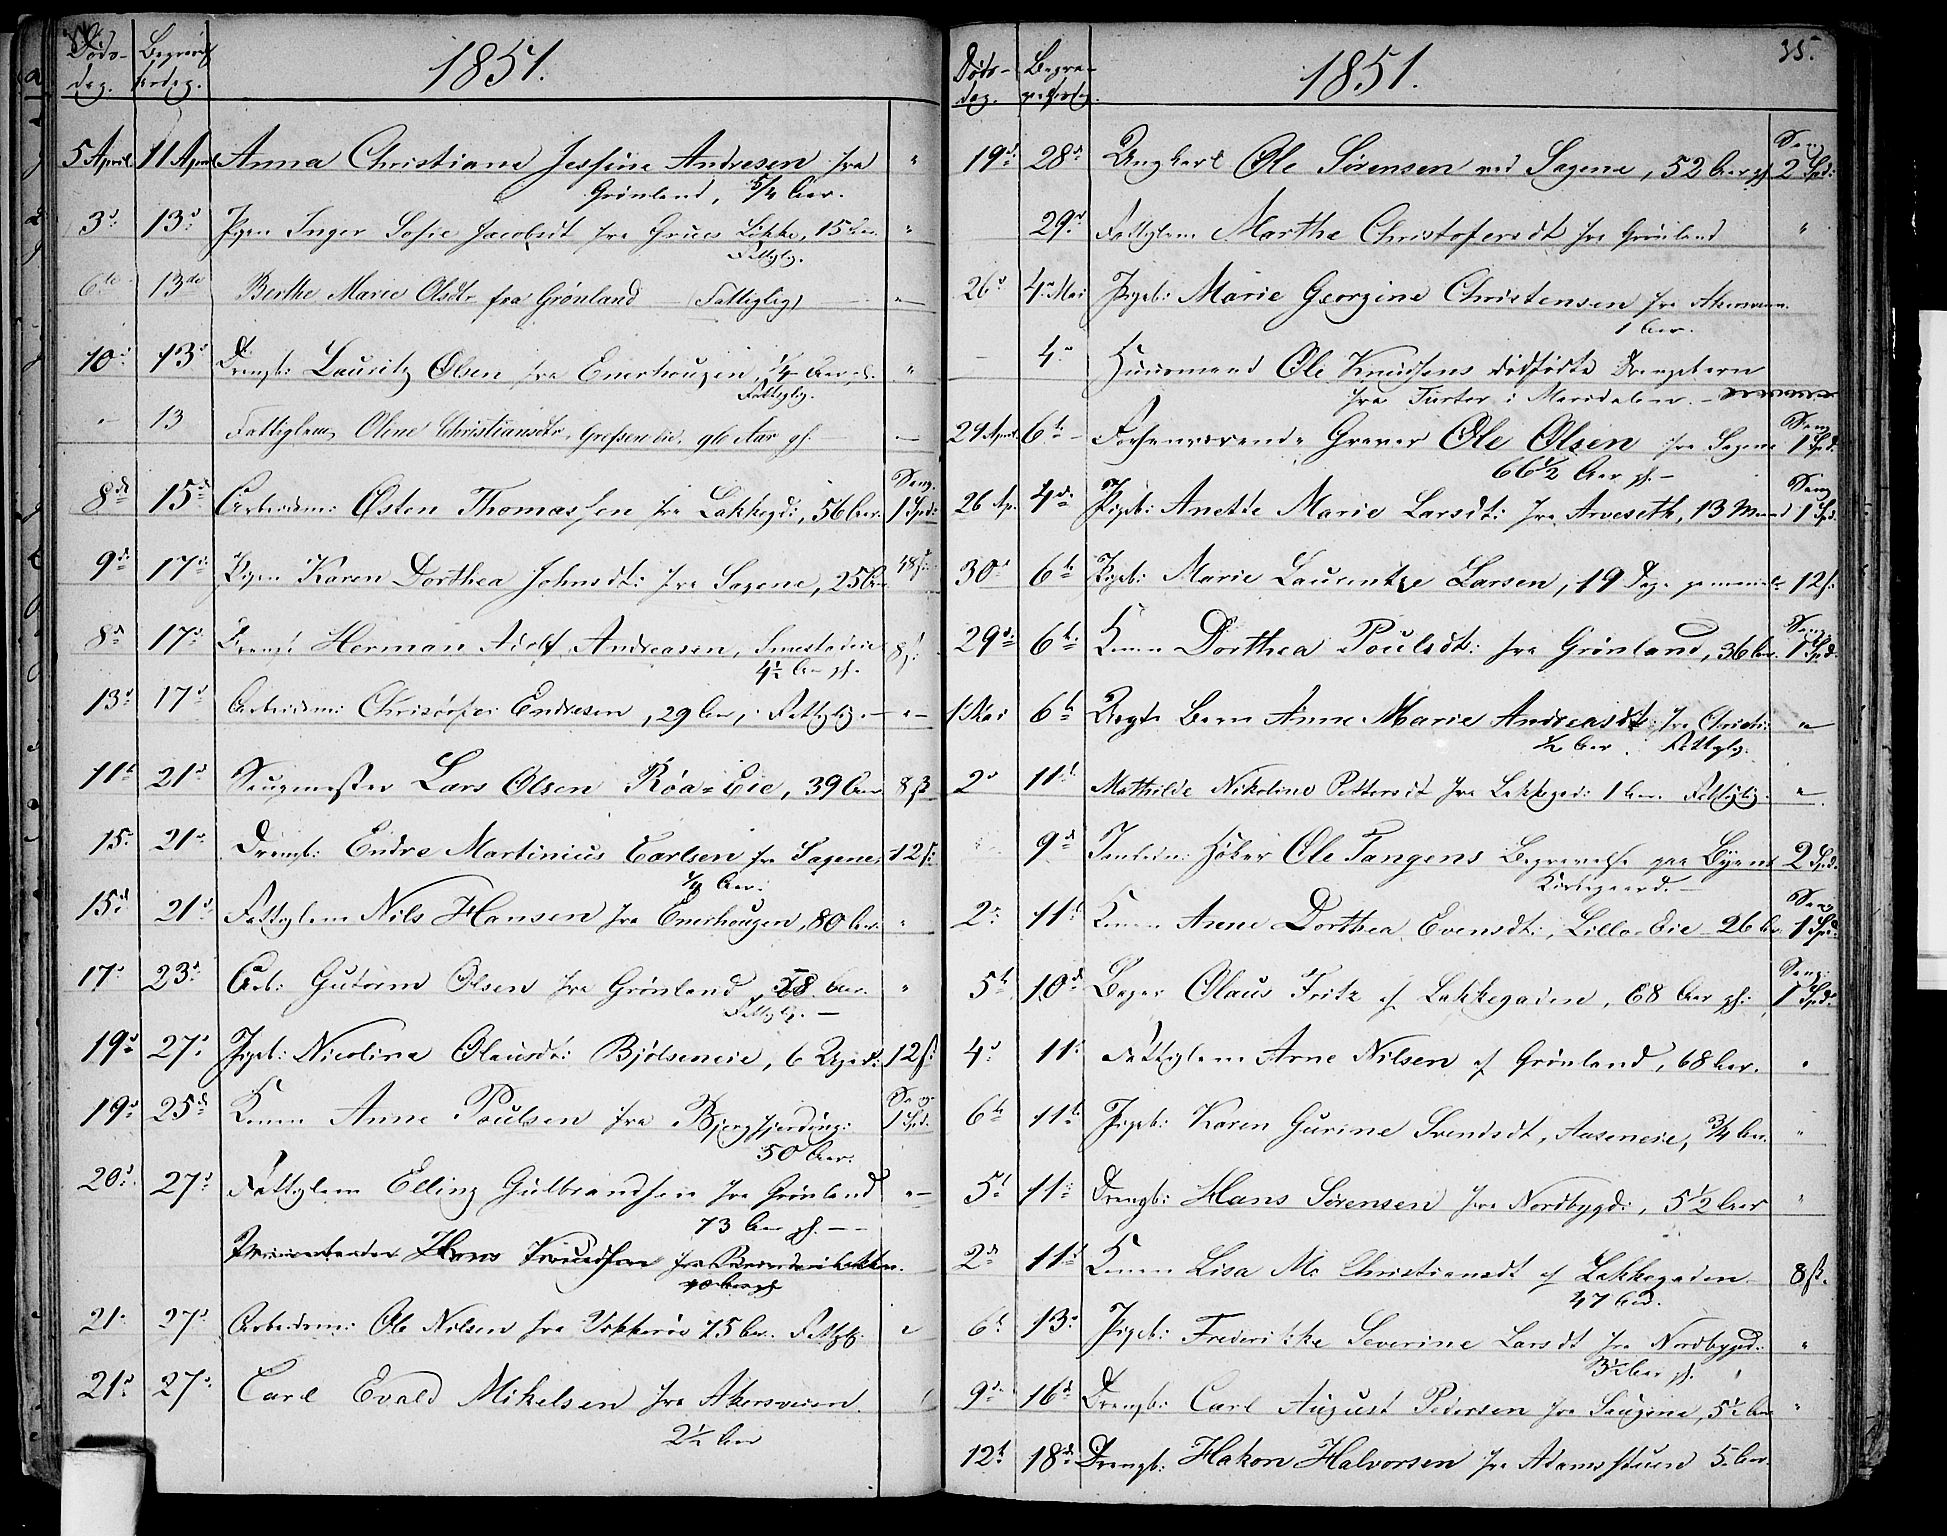 Døds-
dag.
1851.
5 April 11 April Anna Christiane Jesfine Andresen fra "
Grønland, 5/4 Aar.
3d 13d Pigen Inger Sofie Jacobsdt fra Grues Løkke, 15 Aar. "
Fattiglig.
6te 13de Berthe Marie Olsdtr fra Grønland (Fattiglig) "
10d 13d Drengb: Lauritz Olsen fra Enerhaugen, 1/4 Aar gl. "
Fattiglig.
" 13 Fattiglem Oline Christiansdtr, Grefsen Eie, Aar gl.
Seng.
8de 15de Arbeidsm: Østen Thomassen fra Lakkegd:, 56 Aar. 1 Spd:
9de 17de Pigen Karen Dorthea Johnsdt: fra Sagene, 25 Aar 48 s:
8de 17d Drengb Herman Adolf Andreasen, 8 s:
4½ Aar gl.
13d 17d Arbeidsm: Christofer Endresen, 29 Aar, Fattiglig. — " —
11t 21d Saugmester Lars Olsen Røa-Eie, 39 Aar 8 sk
15 21d Drengb: Endre Martinius Carlsen fra Sagene, 12 s:
Aar.
15d 21d Fattiglem Nils Hansen fra Enerhaugen, 80 Aar. "
17d 23d Arb: Gutorm Olsen fra Grønland 58 Aar. "
Fattiglig. —
19d 27d Pigeb: Nicolina Olausdt: Bjølseneie, 6 Uger: 12 s:
Seng.
19d 25de Konen Anne Poulsen fra Bjergfjerding: 1 Spd:
50 Aar.
20d 27d Fattiglem Elling Gulbrandsen fra Grønland " —
73 Aar gl. —
Hans Knudsen fra
21d 27d Arbeidsm: Ole Nilsen fra 75 Aar. Fattiglig. "
21d 27d Carl Evald Mikelsen fra Akersveien.
2½ Aar
35.
Døds-
dag.
Begra-
velsesdag.
1851.
Seng
19d 28d Ungkarl Ole Sørensen ved Sagene, 52 Aar gl 2 Spd:
29d Fattiglem Marthe Christofersdt fra Grønland "
26d 4d Mai Pigeb: Marie Georgine Christensen fra Akersveien.
1 Aar.
4d Huusmand Ole Knudsens dødfødte Drengebarn
fra i Maridalen.
Seng
29 April 6te Forhenværende Graver Ole Olsen fra Sagene 1 Spd.
66½ Aar gl. —
Seng
26 Ap. 4de Pigeb: Anette Marie Larsdt: fra Arveseth, 13 Maand 1 Spd.
30d 6te Pigeb: Marie Laurentze Larsen, 19 Dage gammel 12 s:
Seng.
29de 6te Konen Dorthea Poulsdt: fra Grønland, 36 Aar. 1 Spd.
1 Mai 6te Uægte Barn Anne Marie Andreasdt: fra Christi: "
½ Aar. Fattiglig.
2d 11te Mathilde Nikoline Pettersdt fra Lakkegad: 1 Aar. Fattiglig. "
9de Høker Ole Tangens Begravelse paa Byens 2 Spd:
Kirkegaard. —
Seng
2d 11te Konen Anne Dorthea Evensdt:, Lillo-Eie 26 Aar 1 Spd:
Seng:
5te 10de Bager Olaus Fritz af Lakkegaden, 68 Aar gl: 1 Spd:
4d 11d Fattiglem Arne Nilsen af Grønland, 68 Aar. "
6te 11te Pigeb: Karen Gurine Svendsdt, Aaseneie, 3/4 Aar. "
5t 11d Drengb: Hans Sørensen fra Nordbygd:, 5½ Aar "
2de 11te Konen Lisa Ma Christiansdt af Lakkegaden 8 sk.
47 Aar.
6t 13d Pigeb: Frederikke Severine Larsdt fra Nordbygd: "
3½ Aar gl.
9de 16de Drengb: Carl August Pedersen fra Saugene, 5½ Aar "
12t 18de Drengb: Hakon Halvorsen fra Adamstuen 5 Aar.